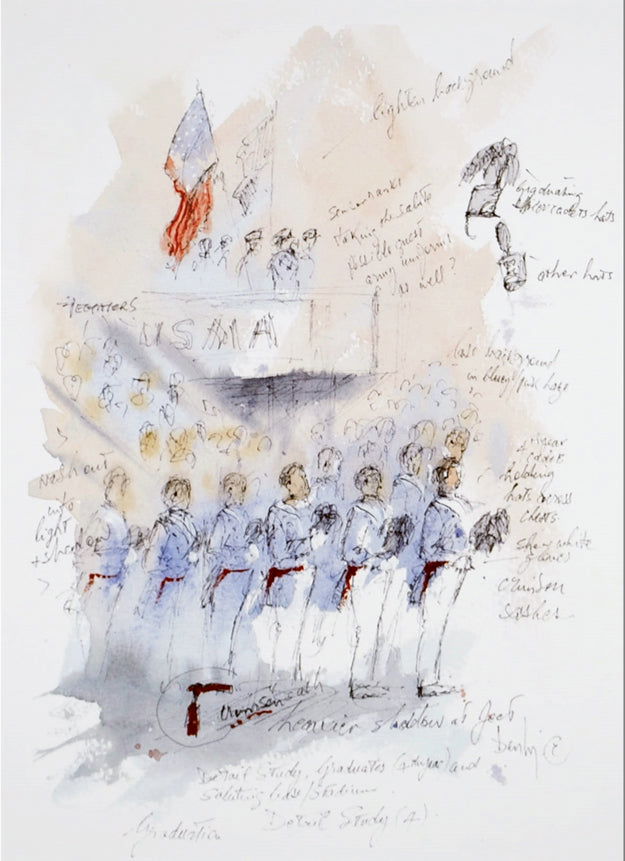 lighter background
Senior ranks
taking the salute
possible guest
army uniforms
as well?
graduating
cadets hats
other hats
USMA
background
in bluey/pink haze
4 year
cadets
holding
hats across
chests
wash out
into
light
show white
gloves
crimson
sashes
crimson sash
heavier shadow at feet
Detail Study, Graduates (4th year) and
Saluting base/Stadium.
Detail Study (4).
Graduation